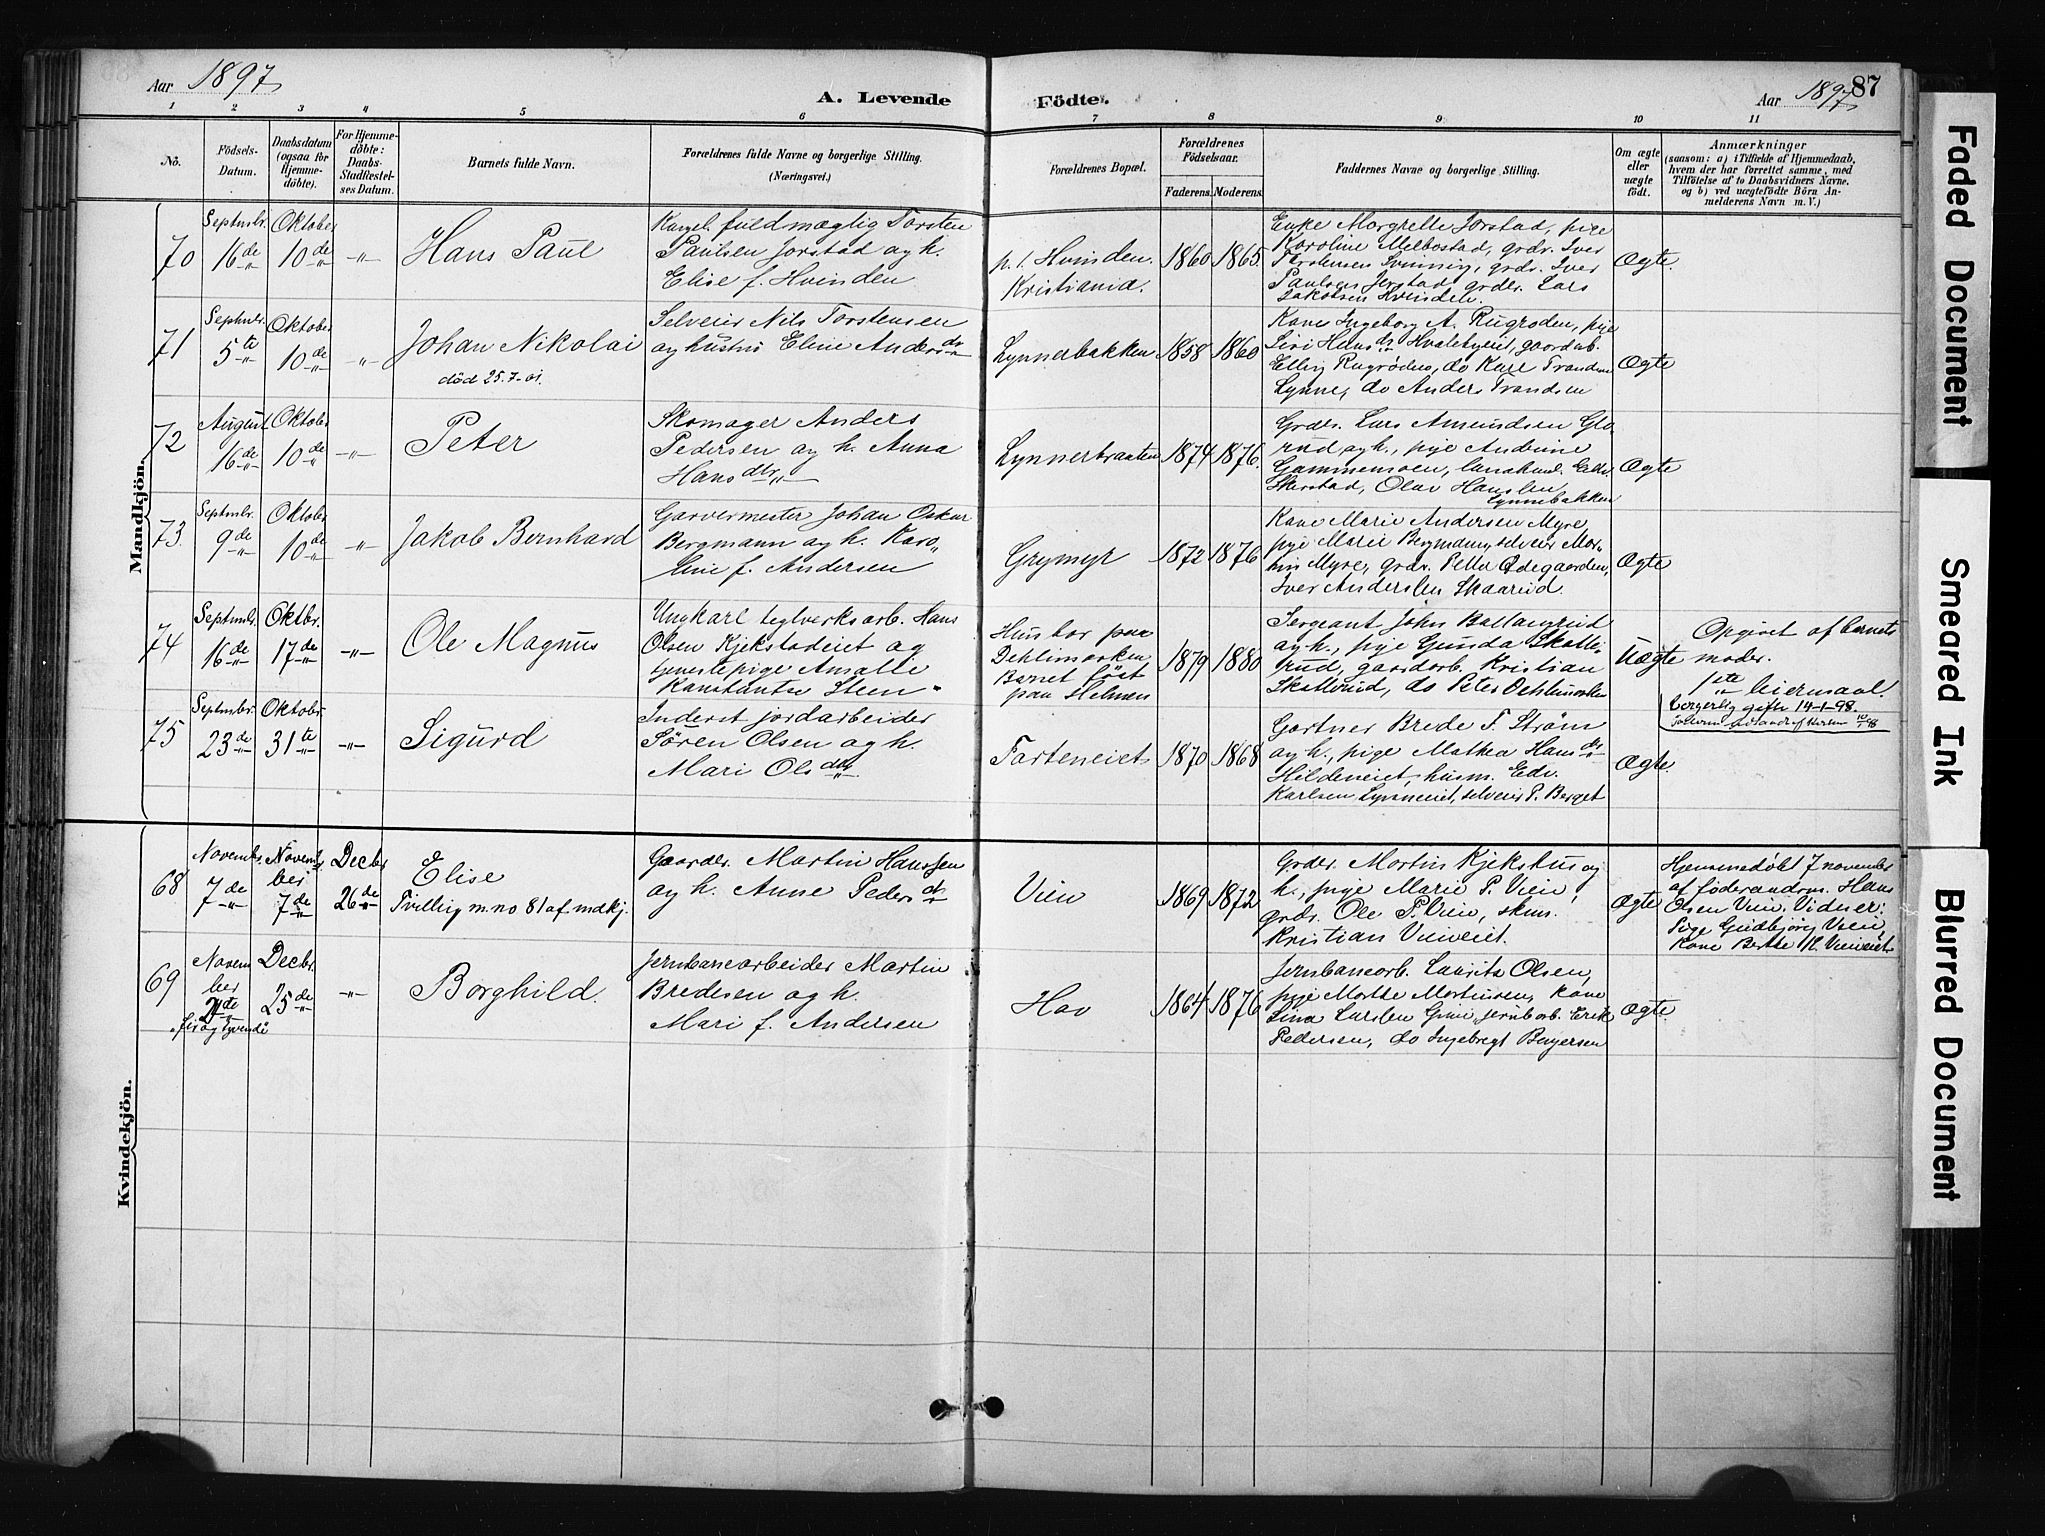 Aar 1897
A. Levende
Födte.
Aar 1897
87
1 2 3 4 5 6 7 8 9 10 11
No.
Födsels-
Datum.
Daabsdatum
(ogsaa for
Hjemme-
döbte).
For Hjemme-
döbte:
Daabs-
Stadfæstel-
ses Datum.
Barnets fulde Navn.
Forældrenes fulde Navne og borgerlige Stilling.
(Næringsvei.)
Forældrenes Bopæl.
Forældrenes
Födselsaar.
Faderens. Moderens.
Faddernes Navne og borgerlige Stilling.
Om ægte
eller
uægte
födt.
Anmærkninger
(saasom: a) i Tilfælde af Hjemmedaab,
hvem der har forrettet samme, med
Tilföielse af to Daabsvidners Navne,
og b) ved uægtefödte Börn An-
melderens Navn m. V.)
Mandkjön.
70
Septembr.
16de
Oktober
10de
Hans Paul
fuldmægtig Torsten
Paulsen Jorstad og h.
Elise f. Hvinden
p. t. Hvinden.
Kristiania.
1860 1865
Enke Margrethe Jorstad, pige
Karoline Melbostad, grdr. Iver
Svinning, grdr. Iver
Paulsen Jorstad grdr. Lars
Jakobsen Hvinden.
Ægte.
71
Septmbr.
5te
Oktober
10de
Johan Nikolai
død 25.7-01.
Selveier Nils Torstensen
og hustru Eline Andersdr
Lynnebakken
1858 1860
Kone Ingeborg A. Rugroden, pige
Siri Hansdr Hvalebyeiet, gaardb.
Elling Rugrøden, do Kari Trondsen
Lynne, do Anders Trondsen
Ægte
72
August
16de
Oktober
10de
Peter
Skomager Anders
Pedersen og h. Anna
Hansdtr
Lynnerbraaten
1874 1876
Grdr. Lars Amundsen Glo
rud og h., pige Andrine
Gammemoen, landhand. Edv.
Skiastad, Olav Hanssen
Lynnebakken
Ægte
73.
Septmbr.
9de
Oktober
10de
Jakob Bernhard
Garvermester Johan Oskar
Bergmann og h. Karo„
line f. Andersen
Grymyr
1872 1876
Kone Marie Andersen Myre,
pige Marie Bergmann, selveier Mar-
tin Myre, grdr. Petter Ødegaarden,
Iver Anderssen Skaarud.
Ægte
74
Septmbr.
16de
Oktbr.
17de
Ole Magnus
Ungkarl teglverksarb. Hans
Olsen Kjekstadeiet og
tjenestepige Amalie
Konstantse Steen
Hun bor paa
Dehlimarken
Barnet født
paa Helmen
1879 1880
Sergeant John Ballangrud
og h., pige Gunda Skatte-
rud, gaardarb. Kristian
Skatterud, do Peter Dehlimarken
Uægte
Opgivet af barnets
moder.
1ste leiermaal.
borgerlig gifte 14-1-98.
75
Septmbr.
23de
Oktobr.
31te
Sigurd
Inderst jordarbeider
Sören Olsen og h.
Mari Olsdtr
Torteneiet
1870 1868
Gartner Brede T. Strøm
og h., pige Mathea Hansdr
Hildeneiet, husm. Edv.
Karlsen Lysneeiet, selveier P. Berget
Ægte.
Kvindekjön.
68
Novembr.
7de
Novem
ber
7de
Decbr
26de
Elise
Tvilling m. no 81 af mdkj.
Gaardbr. Martin Hanssen
og h. Anne Pedersdr
Vien
1869 1872
Grdbr. Martin Kjekshus og
h., pige Marie P. Vien,
grdr. Ole P. Vien, skm.
Kristian Vieneiet.
Ægte
Hjemmedøbt 7 november
af föderaadsm. Hans
Olsen Vien. Vidner:
Pige Gudbjörg Vien,
Kone Berthe K. Vieneiet
69
Novem
ber
24de
fireogtyvende
Decbr.
25de
Borghild.
Jernbanearbeider Martin
Bredesen og h.
Mari f. Andersen
Hov
1864 1876
Jernbanearb. Laurits Olsen,
pige Marthe Martinsen, kone
Lina Larssen Grini, jernb.arb. Erik
Pedersen, do Ingebregt Børgersen
Ægte.
Faded Document
Smeared Ink
Blurred Document